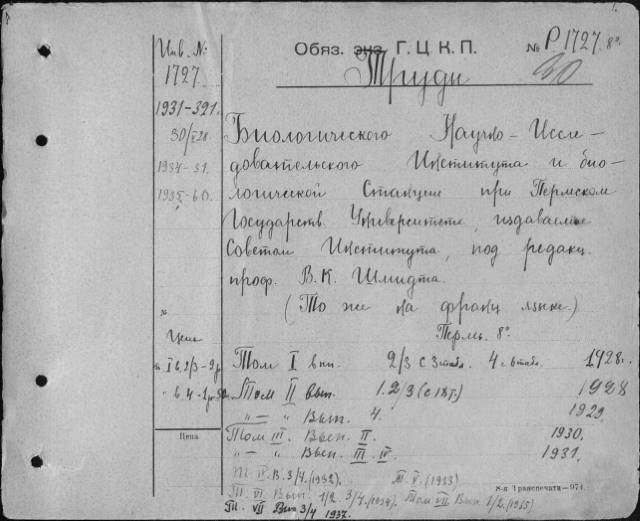 Инв. №
1727
1931-321.
1934-31.
1935-60.
№
Цена
Цена
Обяз. экз. Г. Ц. К. П.
№ Р1727. 8°.
30
Труды
Биологического Научно-Иссле-
довательского Института и био-
логической Станции при Пермском
Государств. Университете, издаваемые
Советом Института, под редакц.
проф. В. К. Шмидта.
(То же на франц. языке.)
Пермь. 8°.
Том I вып. 2/3 с 3 табл. 4 с 6 табл. 1928 г.
Том II вып. 1. 2/3 (с 1 вт.) 1928
"—" Вып. 4. 1929.
Том III. Вып. II. 1930.
"—" Вып. III. IV. 1931.
Т. IV. В. 3/4. (1932). Т. V. (1933)
Т. VI Вып. 1/2 3/4. (1934). Том VII. Вып. 1/2. (1935)
Т. VII Вып 3/4 1937.
8-я Транспечать—974.